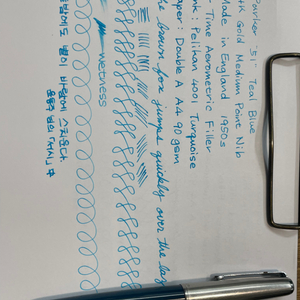 Parker "51" Teal Blue
Gold Medium Point Nib
Made in England 1950s
Time Aerometric Filler
Pelikan 4001 Turquoise
Double A A4 90 gsm
brown fox jumps quickly over the lazy
wetness
별이 바람에 스치운다.
윤동주 님의 「서시」 中